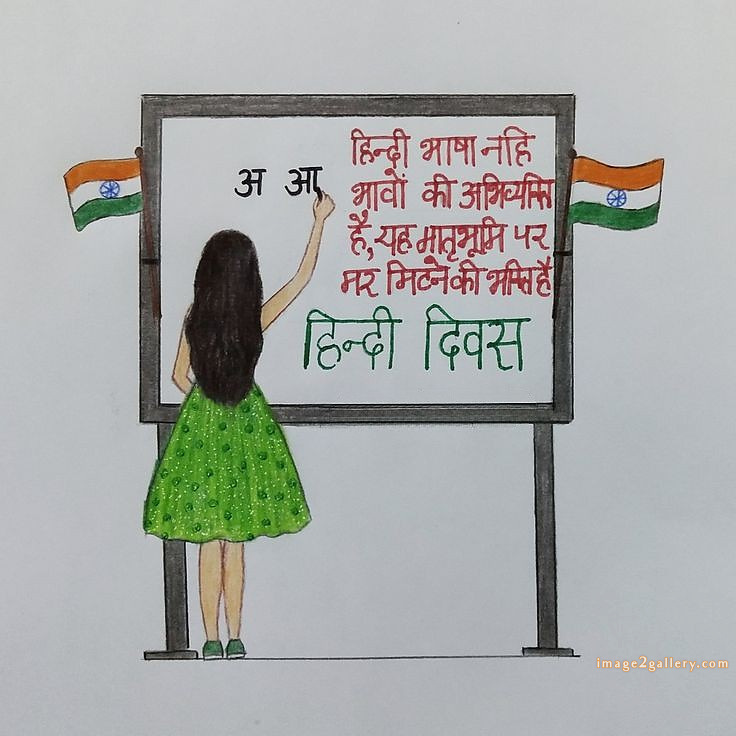 अ आ
हिन्दी भाषा नहि
भावों की अभिव्यक्ति
है, यह मातृभूमि पर
मर मिटने की भक्ति है
हिन्दी दिवस
image2gallery.com